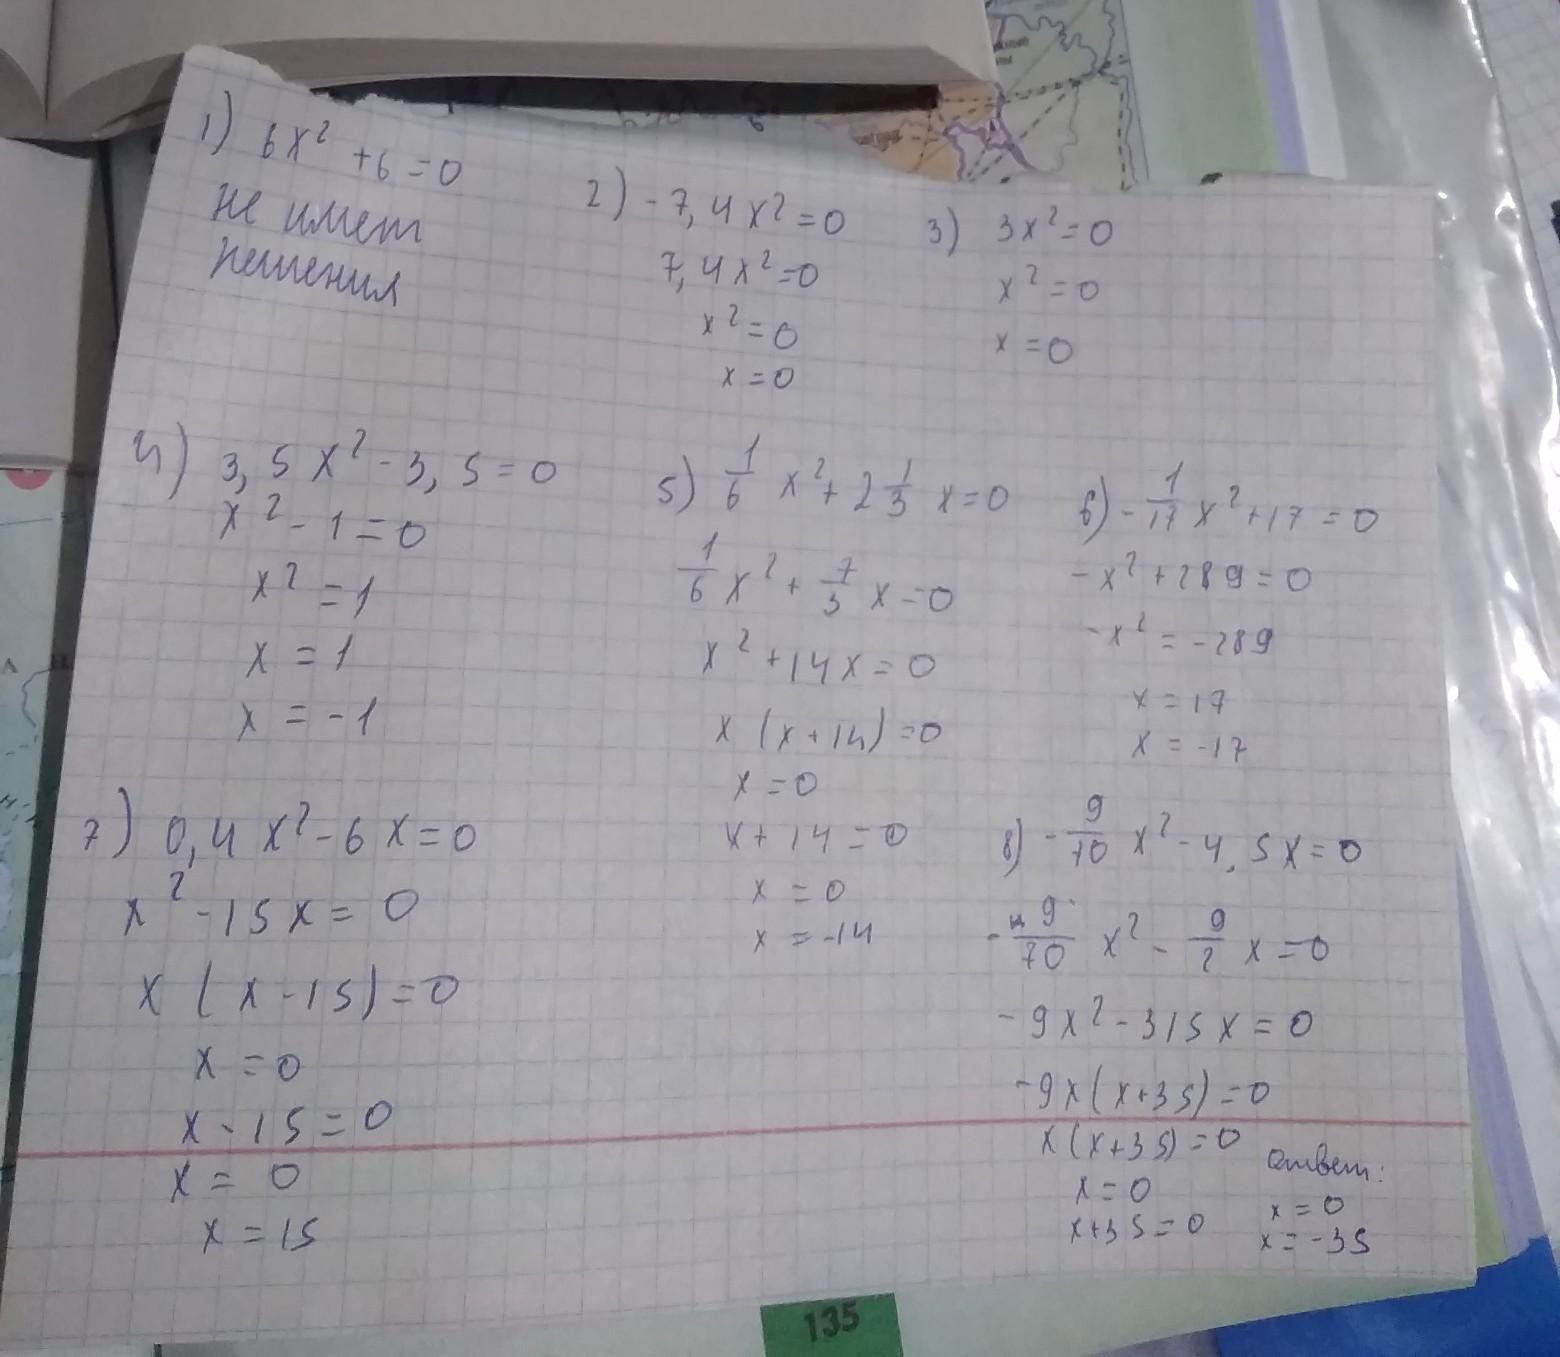 1) 6x² + 6 = 0
не имеет
решения
2) -7,4x² = 0
7,4x² = 0
x² = 0
x = 0
3) 3x² = 0
x² = 0
x = 0
4) 3,5x² - 3,5 = 0
x² - 1 = 0
x² = 1
x = 1
x = -1
5) 1/6 x² + 2 1/3 x = 0
1/6 x² + 7/3 x = 0
x² + 14x = 0
x (x + 14) = 0
x = 0
x + 14 = 0
x = 0
x = -14
6) -1/17 x² + 17 = 0
-x² + 289 = 0
-x² = -289
x = 17
x = -17
7) 0,4x² - 6x = 0
x² - 15x = 0
x (x - 15) = 0
x = 0
x - 15 = 0
x = 0
x = 15
8) -9/70 x² - 4,5x = 0
-9/70 x² - 9/2 x = 0
-9x² - 315x = 0
-9x (x + 35) = 0
x (x + 35) = 0
x = 0
x + 35 = 0
Ответ:
x = 0
x = -35
135